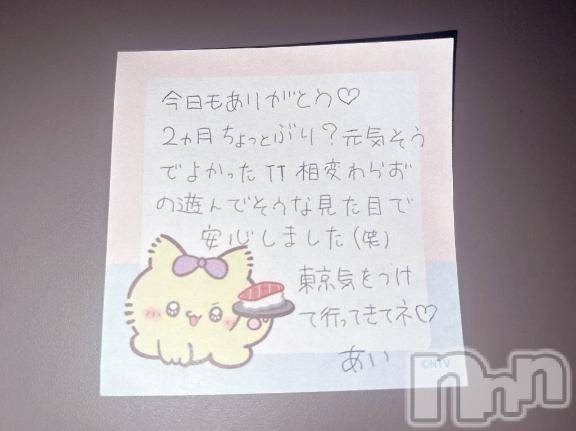 今日もありがとう♡
2ヵ月ちょっとぶり？元気そう
でよかったTT 相変わらず
の遊んでそうな見た目で
安心しました(笑)
東京気をつけ
て行ってきてネ♡
あい
©NTV
nnn